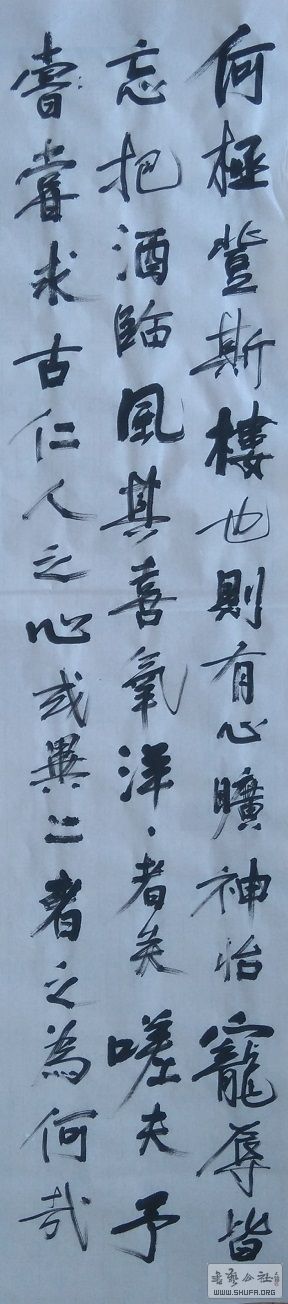 何極登斯樓也則有心曠神怡寵辱皆
忘把酒臨風其喜氣洋、者矣嗟夫予
嘗嘗求古仁人之心或異二者之為何哉
书艺公社
WWW.SHUFA.ORG